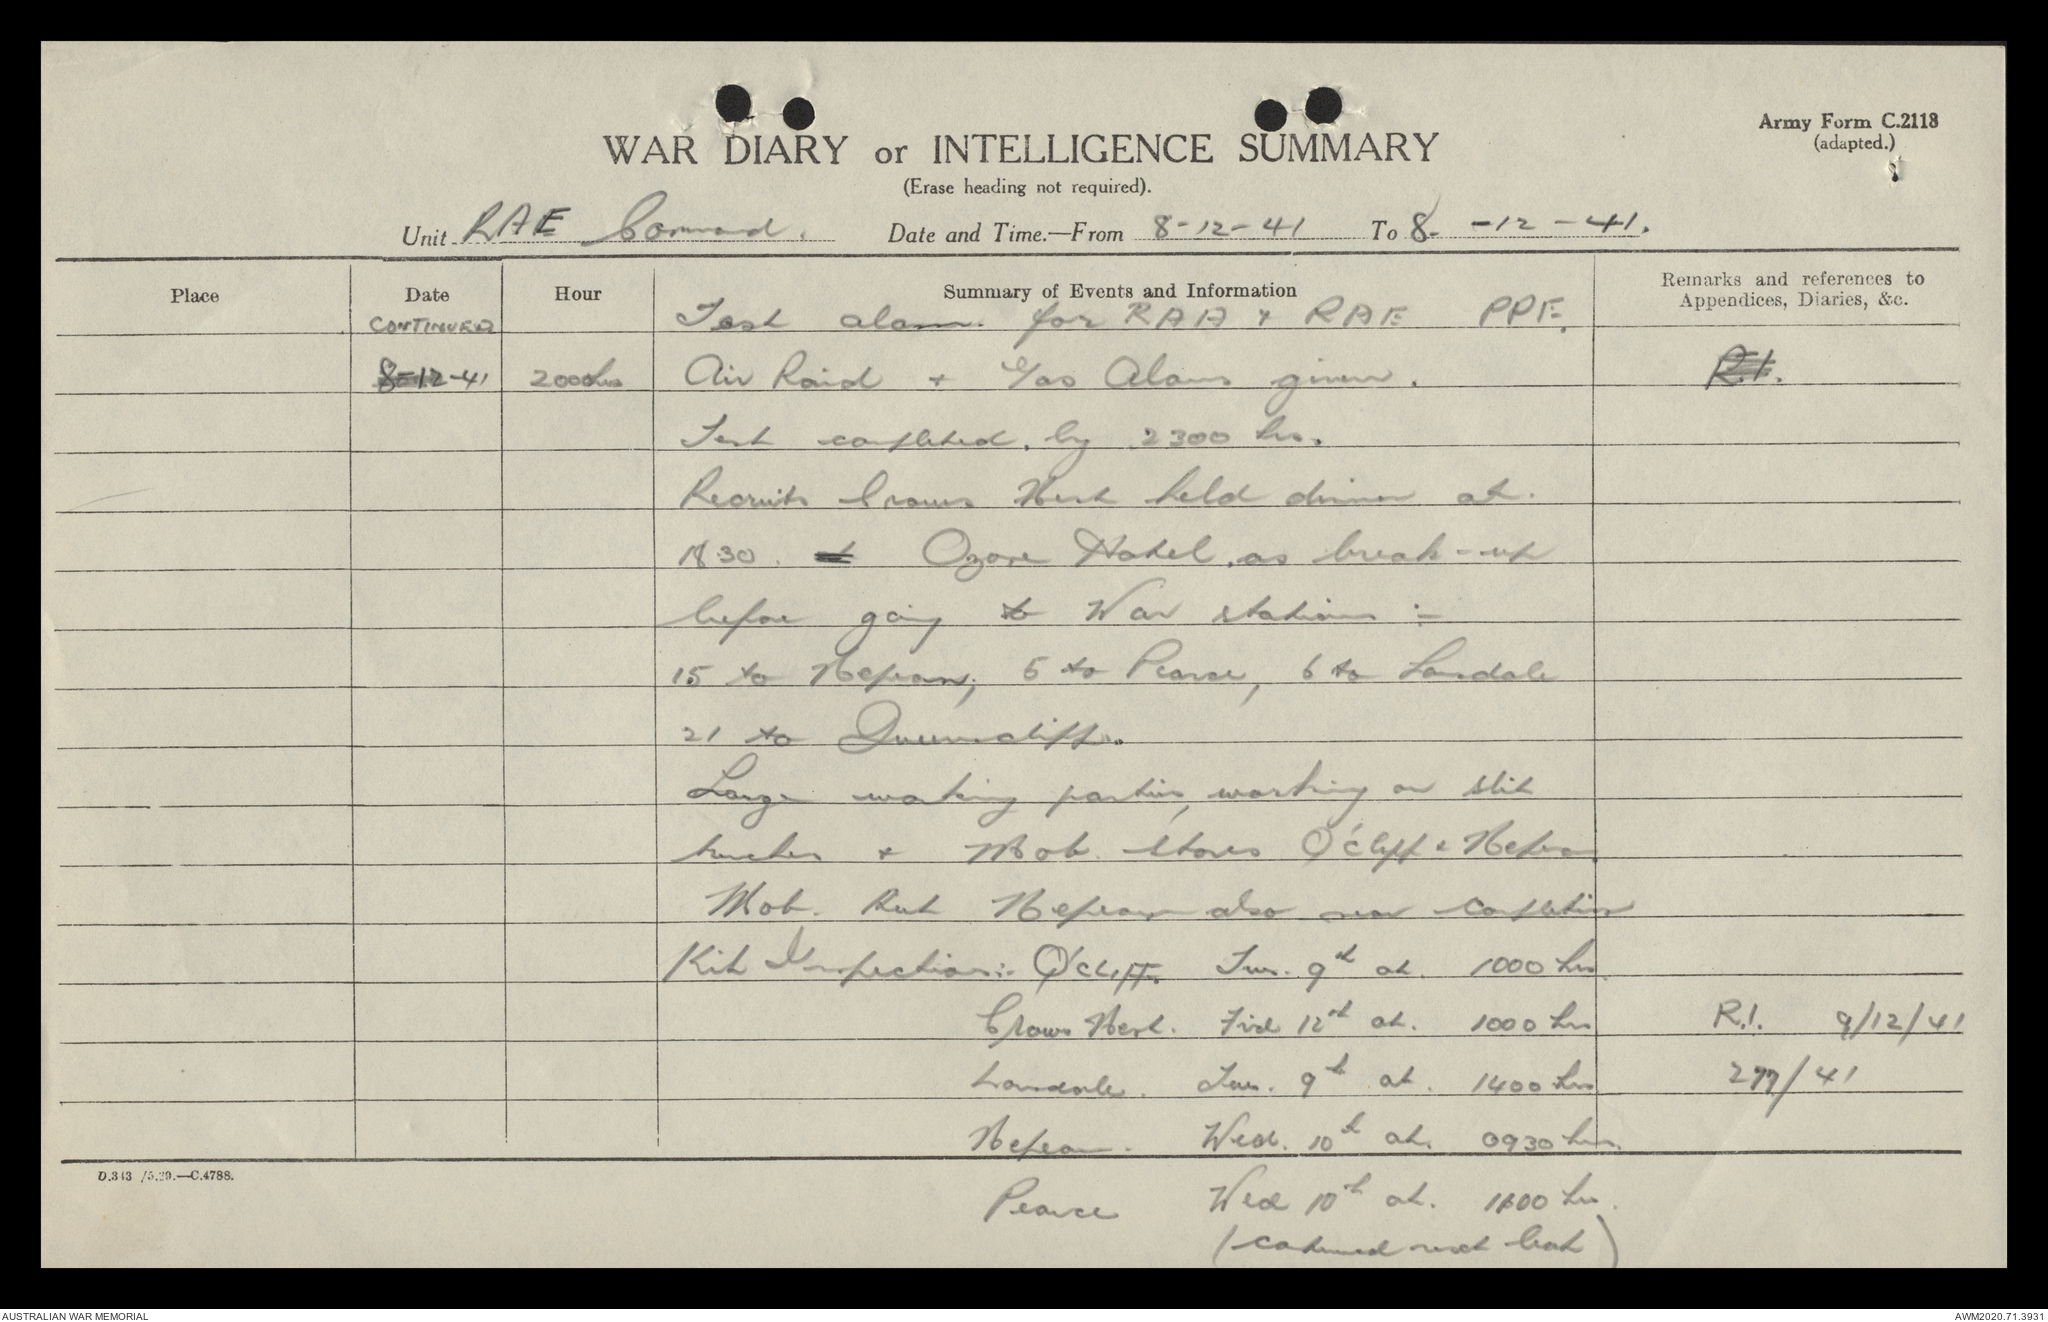 Army Form C.2118
(adapted.)
WAR DIARY or INTELLIGENCE SUMMARY
(Erase heading not required).
Unit RAE Command. Date and Time.—From 8-12-41 To 8-12-41.
Place Date Hour Summary of Events and Information Remarks and references to Appendices, Diaries, &c.
CONTINUED Test alarm for RAA & RAE PPF.
8-12-41 2000hrs Air Raid & Gas Alarms given. R.1.
Test completed by 2300 hrs.
Recruits Crows Nest held dinner at
1830. Ozone Hotel, as break-up
before going to War stations :-
15 to Nepean; 5 to Pearce, 6 to Lonsdale
21 to Queenscliff.
Large working parties, working on slit
trenches & Mob. Stores Q'cliff & Nepean
Mob. Nepean also near completion
Kit Inspection:- Q'CLIFF. Tues. 9th at. 1000 hrs.
Crows Nest. Frid 12th at. 1000 hrs R.1. 9/12/41
Lonsdale. Tues. 9th at. 1400 hrs 277/41
Nepean. Wed. 10th at. 0930 hrs.
D.343 /5.39.—C.4788.
Pearce Wed 10th at. hrs.
(continued next leaf)
AUSTRALIAN WAR MEMORIAL
AWM2020.71.3931